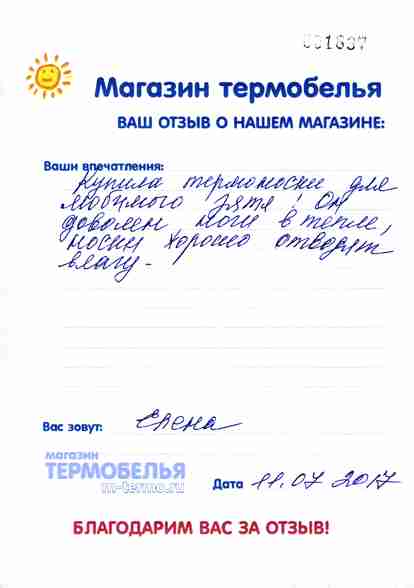 001837
Магазин термобелья
ВАШ ОТЗЫВ О НАШЕМ МАГАЗИНЕ:
Ваши впечатления:
Купила термоноски для
любимого зятя! Он
доволен ноги в тепле,
носки хорошо отводят
влагу.
Вас зовут: Елена
магазин
ТЕРМОБЕЛЬЯ
m-termo.ru
Дата 11.07 2017
БЛАГОДАРИМ ВАС ЗА ОТЗЫВ!